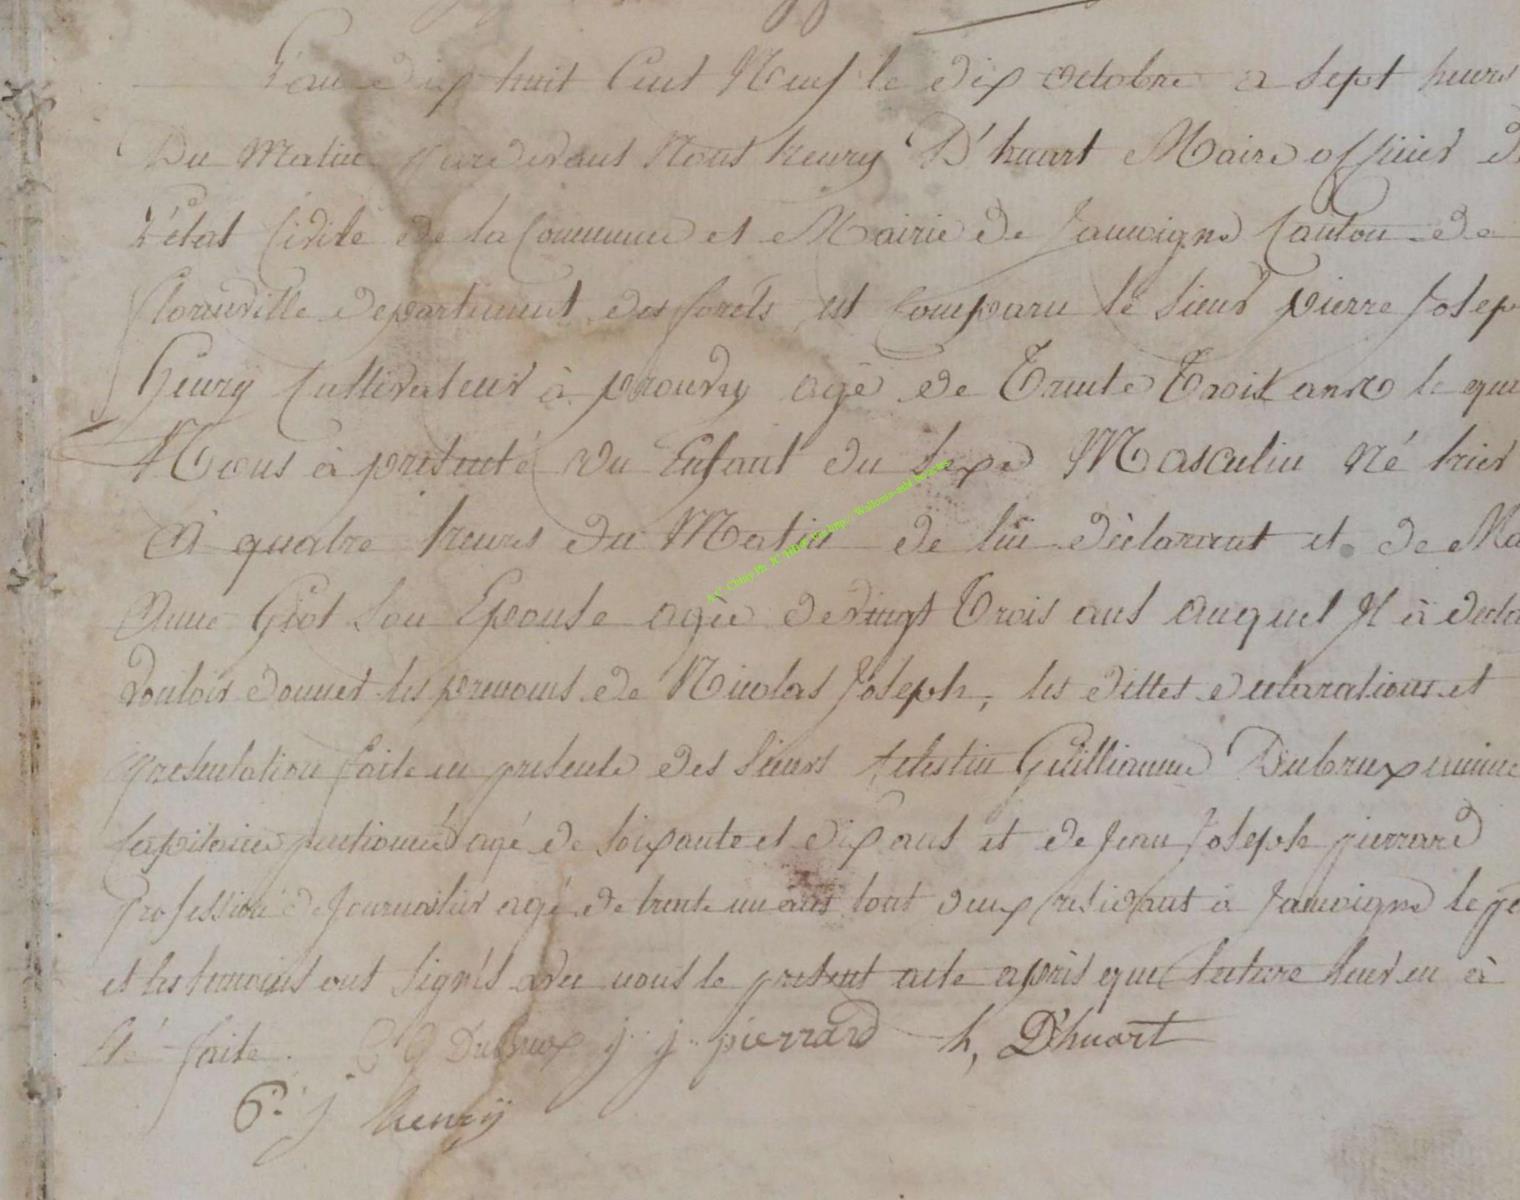 L'an Dix huit Cent Neuf le dix octobre a sept heures
Du Matin pardevant Nous henry D'huart Maire officier de
L'état Civile de la Commune et Mairie de Jamoigne Canton de
florenville departement des forets est Comparu le sieur pierre Josep
henry Cultivateur à prouvy agé de Trente Trois ans le que
Nous à presenté un Enfant du sexe Masculin Né hier
à quatre heures du Matin de lui déclarant et de Ma
Anne Giot son Epouse agée de vingt Trois ans auquel Il à decla
vouloir donner les prenoms de Nicolas Joseph, les dittes declarations et
presentation faite en presente des sieurs Celestin Guilliaume Dubrux
Capitaine pentionné agé de soixante et dix ans et de Jean Joseph pierrard
profession de Journalier agé de trente un ans tout deux residant à Jamoigne le pe
et les temoins ont signés avec nous le present acte après que lecture leur en à
été faite. C G Dubrux j j pierrard h, D'huart
P. j henrÿ